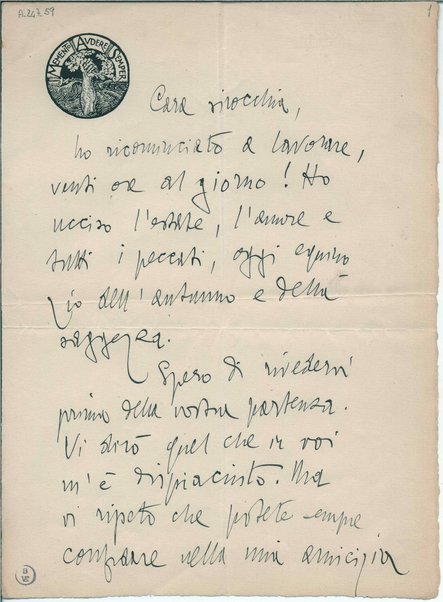 A.247.59
1
MEMENTO AVDERE SEMPER
Cara sirocchia,
ho ricominciato a lavorare,
venti ore al giorno! Ho
ucciso l'estate, l'amore e
tutti i peccati, oggi equino
zio dell'autunno e della
saggezza.
Spero di rivedervi
prima della vostra partenza.
Vi dirò quel che in voi
m'è dispiaciuto. Ma
vi ripeto che potete sempre
confidare nella mia amicizia